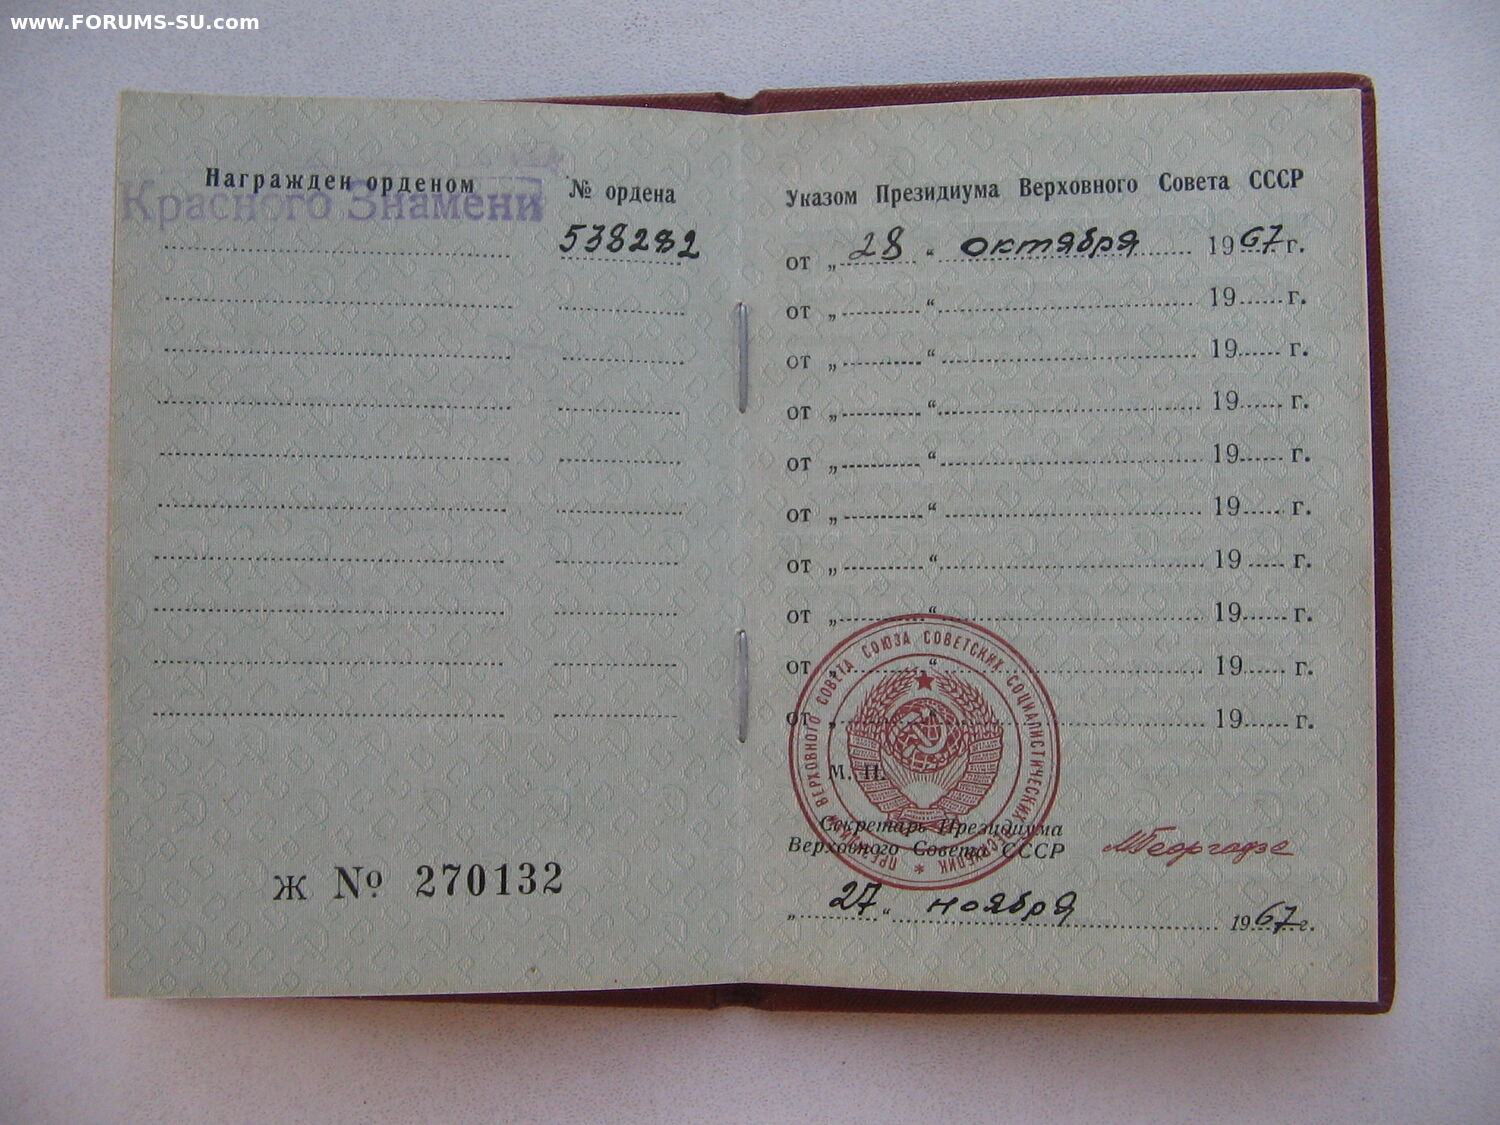 www.FORUMS-SU.com
Награжден орденом
№ ордена
Красного Знамени
538282
Ж № 270132
Указом Президиума Верховного Совета СССР
от „ 28 “ октября 1967 г.
от „ “ 19 г.
от „ “ 19 г.
от „ “ 19 г.
от „ “ 19 г.
от „ “ 19 г.
от „ “ 19 г.
от „ “ 19 г.
от „ “ 19 г.
от „ “ 19 г.
ПРЕЗИДИУМ ВЕРХОВНОГО СОВЕТА СОЮЗА СОВЕТСКИХ СОЦИАЛИСТИЧЕСКИХ РЕСПУБЛИК *
М. П.
Секретарь Президиума
Верховного Совета СССР
МГеоргадзе
„ 27 “ ноября 1967 г.